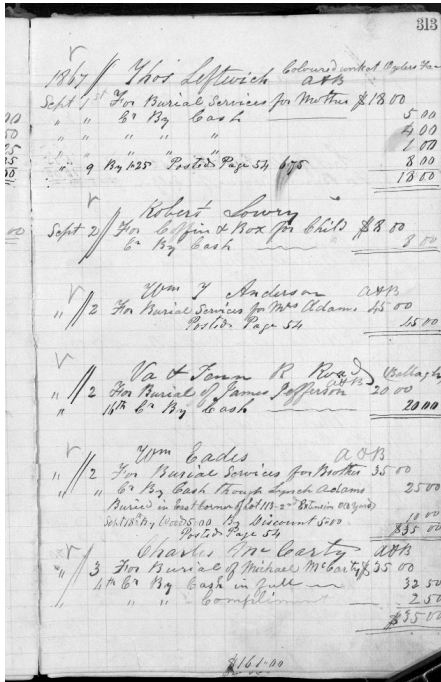 313
1867 Thos Leftwich Coloured work at Oglers A&B
Sept 1st For Burial Services for Mother $18 00
" " Cr By Cash 5 00
" " " " " 4 00
" " " " " 1 00
" 9 By 1.25 Posted Page 54 6.75 8 00
18 00
Robert Lowry
Sept 2 For Coffin & Box for Child $8 00
Cr By Cash 8 00
Wm Y Anderson A&B
" 2 For Burial Services for Mrs Adams 45 00
Posted Page 54 45 00
Va & Tenn R Road A&B
" 2 For Burial of James Jefferson 20 00
" 18th Cr By Cash 20 00
Wm Eades A&B
" 2 For Burial Services for Brother 35 00
" " Cr By Cash through Lynch Adams 25 00
Buried in East corner of Lot 113-2nd Extension
Sept 18th By Wood 5.00 By Discount 5.00 10 00
Posted Page 54 $35 00
Charles Mc Carty A&B
" 3 For Burial of Michael McCarty $35 00
4th Cr By Cash in full 32 50
" " " Compliment 2 50
$35 00
$161.00